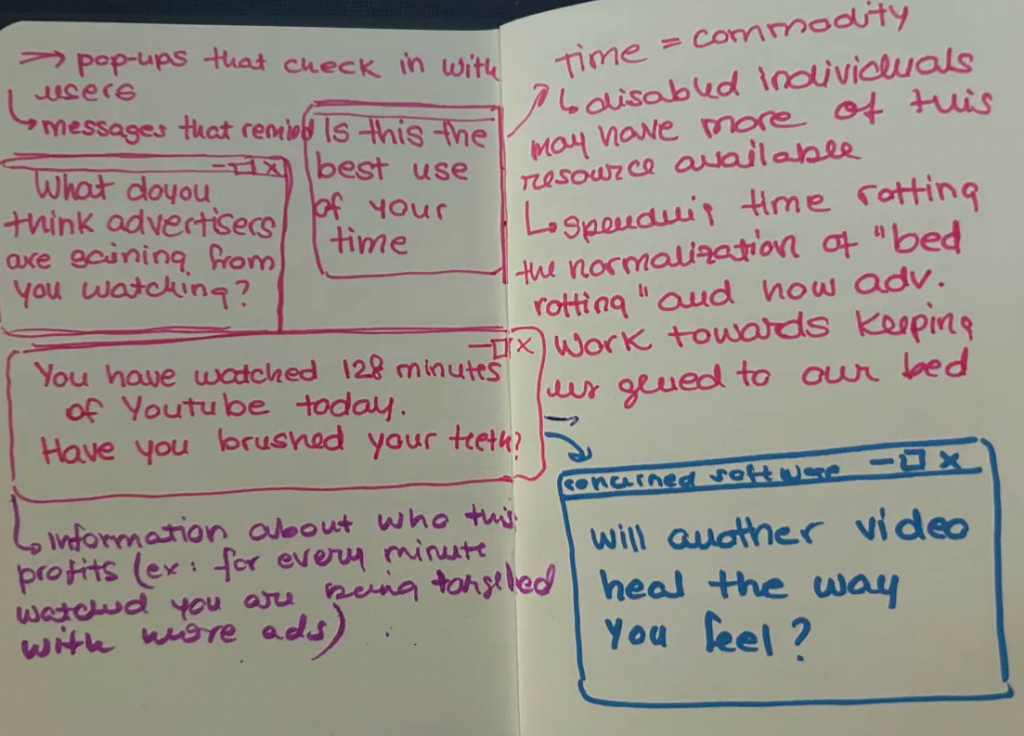 → pop-ups that check in with
users
↳ messages that remind
Is this the
best use
of your
time
- □ x
What do you
think advertisers
are gaining from
you watching?
- □ x
You have watched 128 minutes
of Youtube today.
Have you brushed your teeth?
↳ information about who this
profits (ex: for every minute
watched you are being targeted
with more ads)
time = commodity
↳ disabled individuals
may have more of this
resource available
↳ spending time rotting
the normalization of "bed
rotting" and how adv.
work towards keeping
us glued to our bed
concerned software - □ x
will another video
heal the way
you feel?